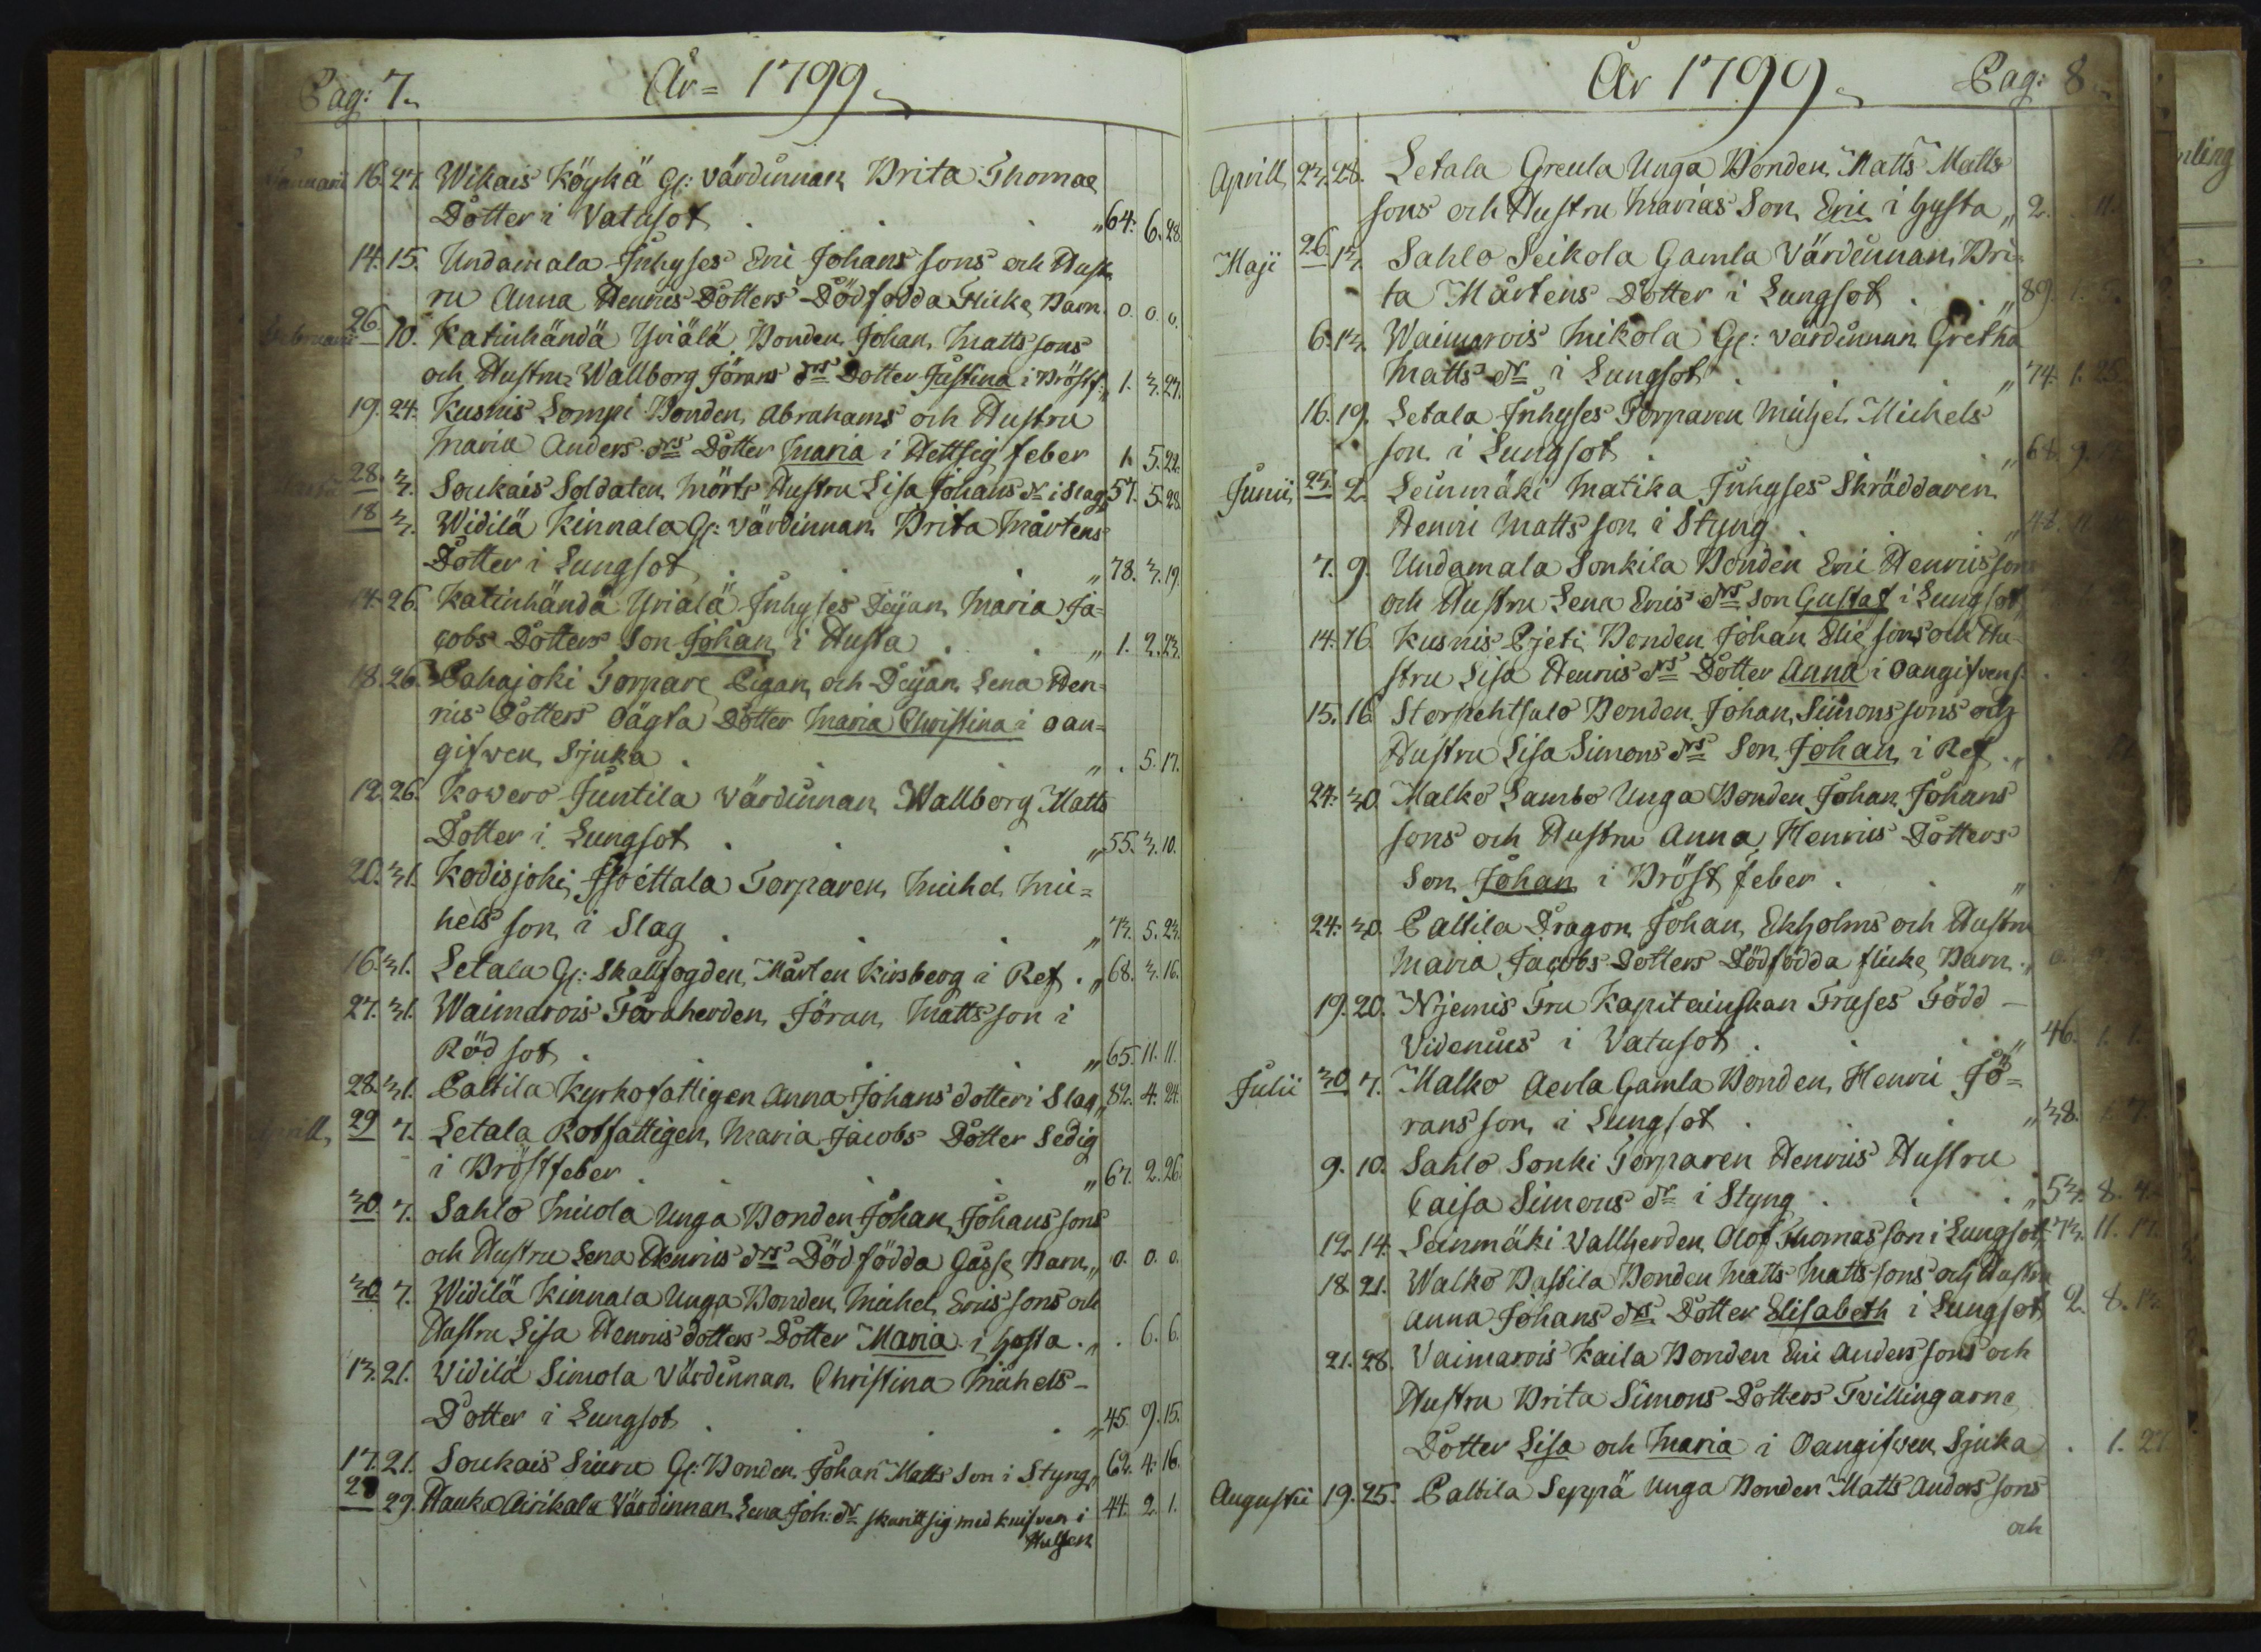 Pag: 7.
År = 1799.
Januarii 16. 27. Wikais Köykä Gl: värdinnan Brita Thomae
Dotter i Vatusot „ 64. 6. 28.
14. 15. Undamala Inhyses Eric Johans sons och Hust
ru Anna Henrics Dotters Dödfödda Flicke Barn. 0. 0. 0.
Februarii 26. 10. Katinhändä Yriälä Bonden Johan Matts sons
och Hustru Wallborg Jörans drs Dotter Justina i Bröstf: „ 1. 3. 27.
19. 24. Kusnis Lompi Bonden Abrahams och Hustru
Maria Anders drs Dotter Maria i Hettsig feber 1. 5. 22.
28. 3. Soukais Soldaten Mörts Hustru Lisa Johans dr i Slag „ 57. 5. 28.
18 3. Widilä Kinnala Gl: värdinnan Brita Mårtens
Dotter i Lungsot „ 78. 3. 19.
14. 26. Katinhändä Yriälä Inhyses Pijan Maria Ja=
cobs Dotters Son Johan i Husta „ 1. 2. 23.
18. 26. Pahajoki Torpare Pigan och Pijan Lena Hen=
rics Dotters Oägta Dotter Maria Christina i oan=
gifwen Sjuka „ . 5. 17.
12. 26. Kovero Juntila Värdinnan Wallborg Matts
Dotter i Lungsot „ 55. 3. 10.
20. 31. Kodisjoki Isoéttala Torparen Michel Mic=
hels son i Slag „ 73. 5. 23.
16. 31. Letala Gl: Skallfogden Mårten Kirsberg i Ref. „ 68. 3. 16.
27. 31. Waimarois Fåraherden Jöran Matts son i
Röd sot „ 65. 11. 11.
28. 31. Paltila Kyrkofattigen Anna Johans dotter i Slag „ 82. 4. 24.
29 7. Letala Rotfattigen Maria Jacobs Dotter Sedig
i Bröstfeber „ 67. 2. 26.
30 7. Sahlo Micola Unga Bonden Johan Johans sons
och Hustru Lena Henrics drs Dödfödda Gosse Barn „ 0. 0. 0.
30 7. Widilä Kinnala Unga Bonden Michel Erics sons och
Hustru Lisa Henrics dotters Dotter Maria i hosta „ . 6. 6.
13. 21. Vidilä Simola Värdinnan Christina Michels-
Dotter i Lungsot „ 45. 9. 15.
17. 21. Soukais Siuru Gl: Bonden Johan Matts Son i Styng „ 62. 4. 16.
28 29. Hauko Airikala Värdinnan Lena Joh: dr skurit sig med knifven i 44. 2. 1.
Halsen
År 1799.
Pag: 8.
Aprill 23. 28. Letala Greula Unga Bonden Matts Matts
sons och Hustru Marias Son Eric i hysta „ 2. . 11.
Maji 26 13. Sahlo Seikola Gamla Värdinnan Bri=
ta Mårtens Dotter i Lungsot „ 89. 1. 5.
6. 13. Waimarois Mikola Gl: värdinnan Gretha
Matts dr i Lungsot „ 74. 1. 25.
16. 19. Letala Inhyses Torparen Michel Michels
son i Lungsot „ 68. 9.
Junii 25 2. Leinmäki Matika Inhyses Skräddaren
Henric Matts son i Styng „ 48. 11.
7. 9. Undamala Sonkila Bonden Eric Henrics sons
och Hustru Lena Erics drs son Gustaf i Lungsot
14. 16. Kusnis Pjeti Bonden Johan Elie sons och Hu-
stru Lisa Henrics drs Dotter Anna i oangifven s.
15. 16 Storpehtsalo Bonden Johan Simons sons och
Hustru Lisa Simons drs Son Johan i Ref. „
24. 30. Malko Sambo Unga Bonden Johan Johans
sons och Hustru Anna Henrics Dotters
Son Johan i Bröst feber „
24. 30. Paltila Dragon Johan Ekholms och Hustru
Maria Jacobs Dotters Dödfödda flicke Barn. „ 0.
19. 20. Njemis Fru Kapitainskan Fruses Född –
Videnius i Vatusot „ 46. 1. 1.
Julii 30 7. Malko Aerla Gamla Bonden Henric Jö=
rans son i Lungsot „ 38. 1. 7.
9. 10. Sahlo Sonki Torparen Henrics Hustru
Caisa Simons dr i Styng „ 53. 8. 4.
12. 14. Leinmäki Vallherden Olof Thomas son i Lungsot „ 73. 11. 17.
18. 21. Walko Bastila Bonden Matts Matts sons och Hustru
Anna Johans drs Dotter Elisabeth i Lungsot 2. 8. 13.
21. 28. Vaimarois Kaila Bonden Eric Anders sons och
Hustru Brita Simons Dotters Tvillingarne
Dotter Lisa och Maria i Oangifwen Sjuka . 1. 27.
Augustii 19. 25. Paltila Seppä Unga Bonden Matts Anders sons
och